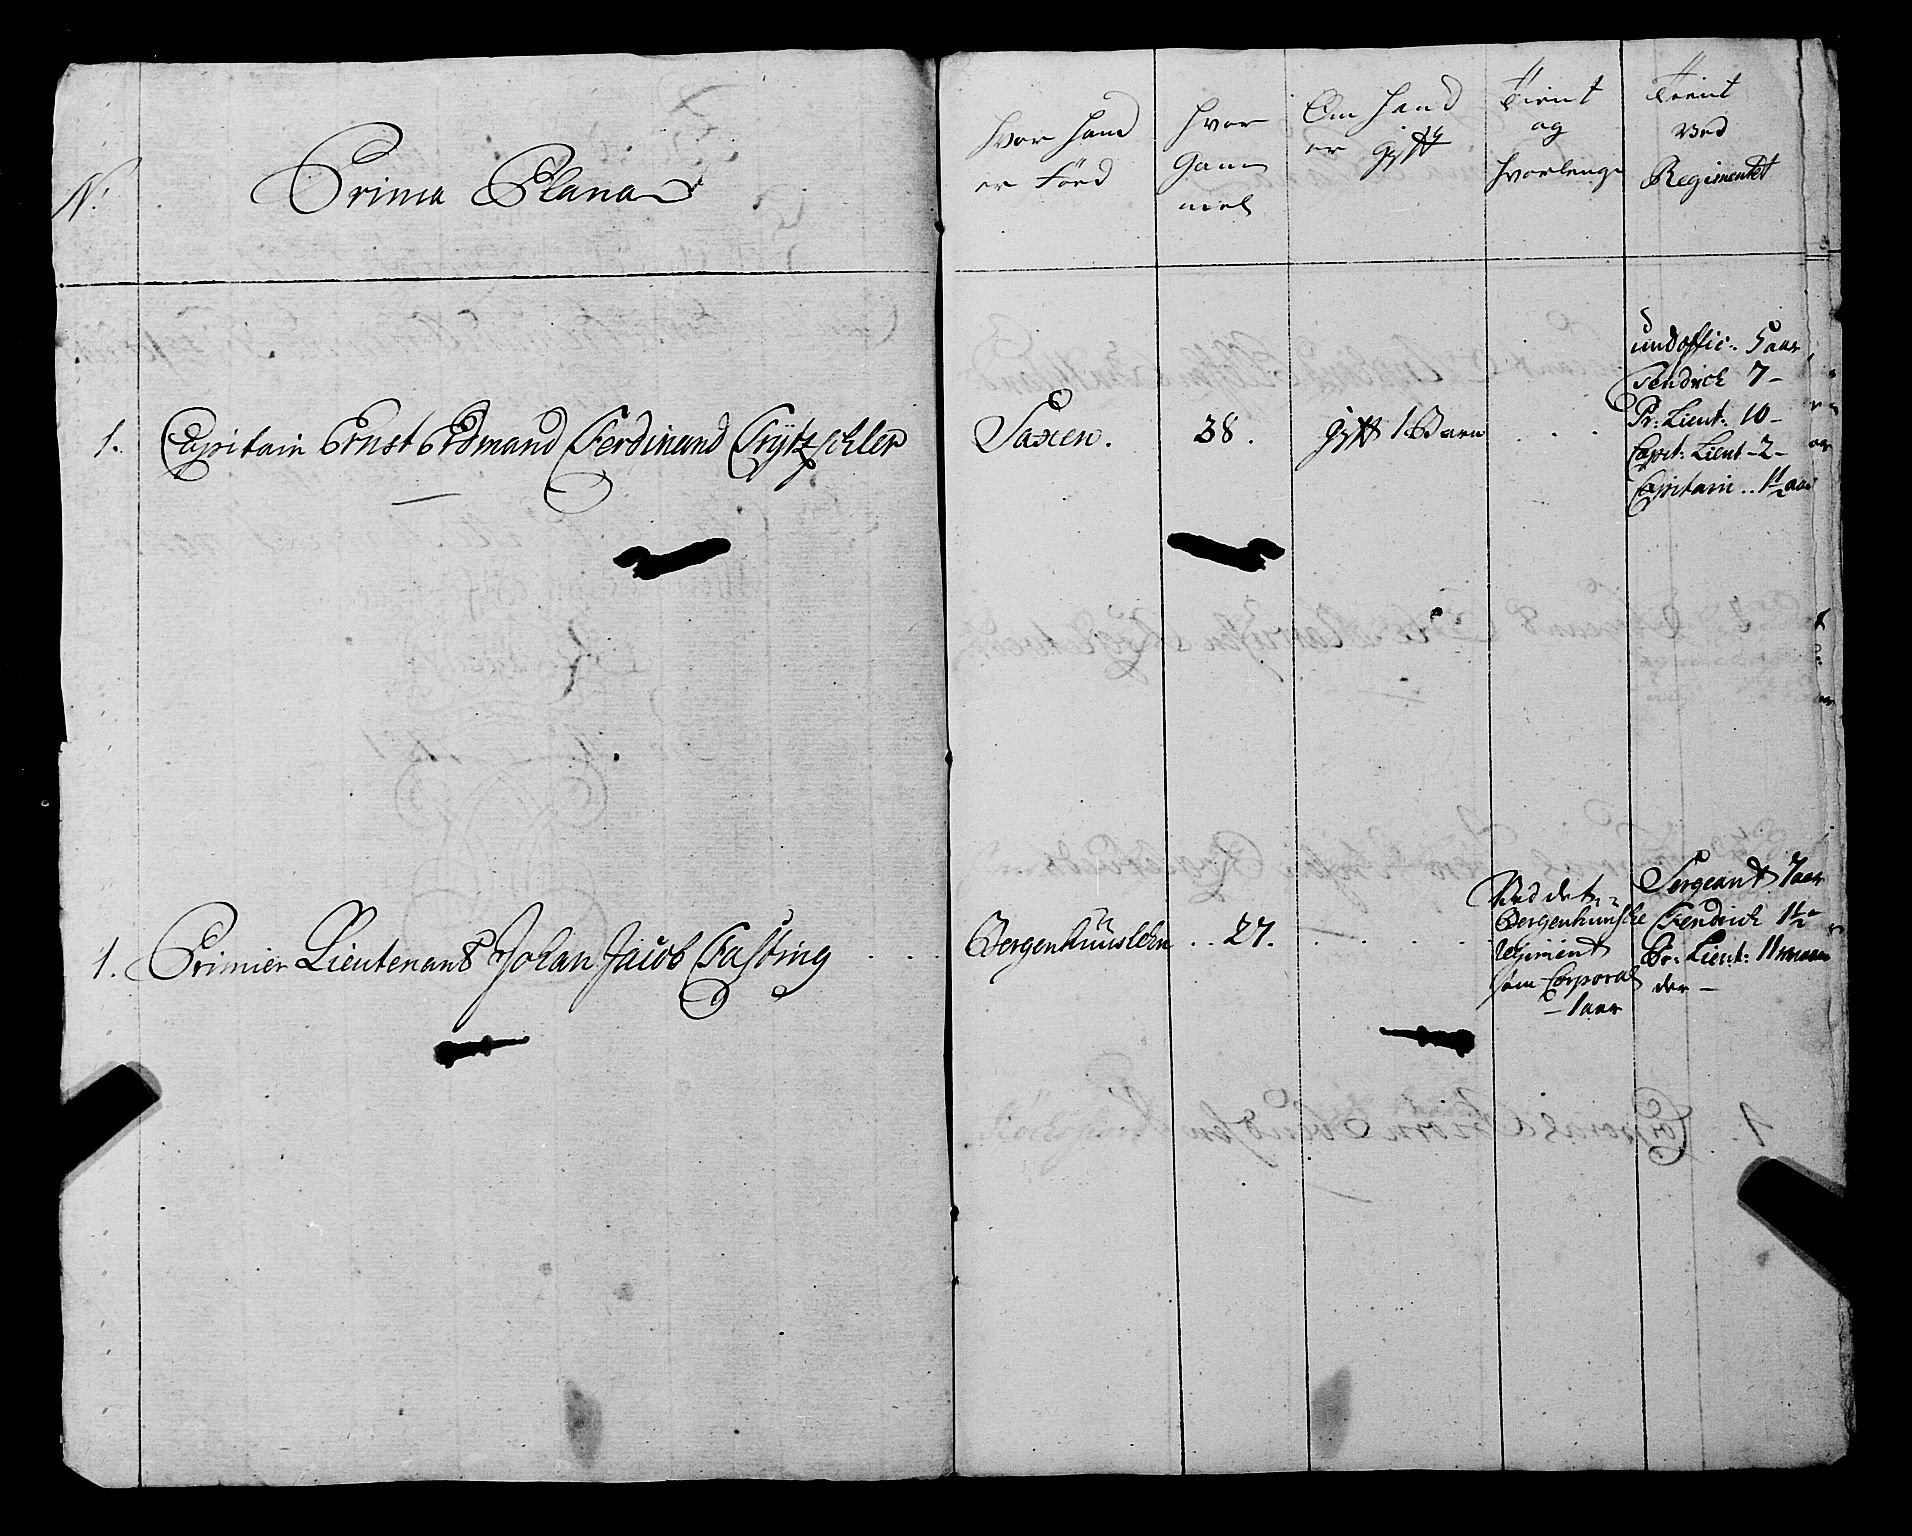 N.
Prima Plana
Hvor hand
er Föed
Hvor
Gam
mel
Om hand
er gift
Tient
og
hvorlenge
Tient
Ved
Regimentet
1. Capitain Ernst Edmand Ferdinand Trÿtzschler
Saxen.
38.
gift 1. Barn
Undoffic:. 5 aar
Fendrick 7 -
Pr: Lieut: 10 -
Capit: Lieut - 2 -
Capitain .. 1½ aar
1. Primier Lieutenant Johan Jacob Fasting
Bergenhuuslehn
27.
Ved det
Bergenhuusiske
Regiment
som Corporal
- 1 aar
Sergeant 7 aar
Fendrick 1½ -
Pr: Lieut: 11 maane
der -